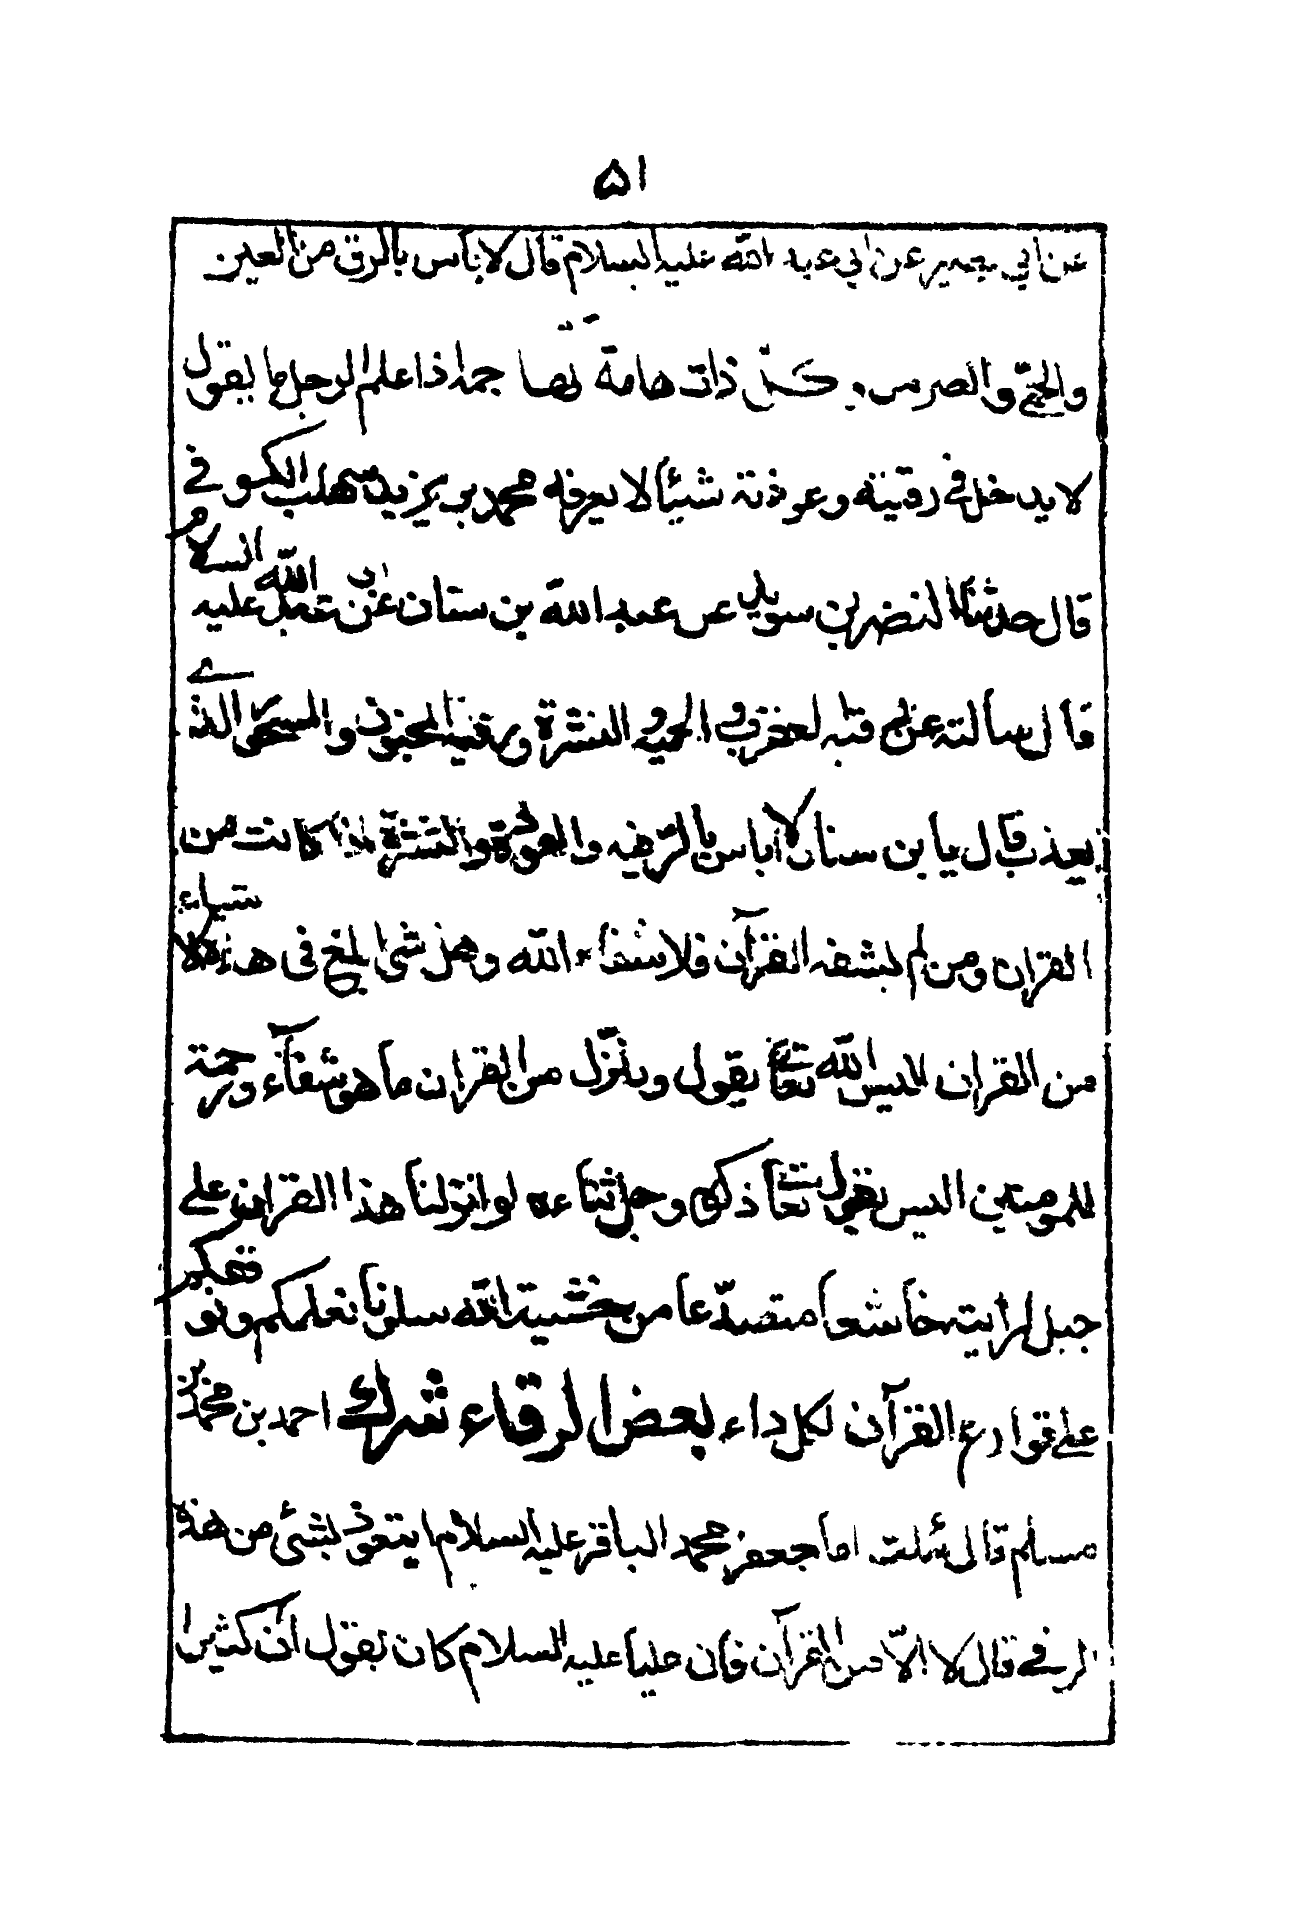 ٥١
عن ابي بصير عن ابي عبد الله عليه السلام قال لا باس بالرق من العين
والحمى والضرس و كل ذات هامة لها حمة اذا علم الرجل ما يقول
لا يدخل في رقيته وعوذته شيئا لا يعرفه محمد بن يزيد بن سهلب الكوفي
قال حدثنا النضر بن سويد عن عبد الله بن سنان عن ابي عبد الله عليه السلام
قال سالته عن رقية العقرب و الحية و النشرة ورقية المجنون والمسحور الذي
يعذب قال يا بن سنان لا باس بالرقية والعوذة والنشرة اذا كانت من
القران ومن لم يشفه القرآن فلا شفاء الله وهل شئ ابلغ في هذه الاشياء
من القران اليس الله تعالى يقول وينزل من القران ما هو شفآء ورحمة
للمومنين اليس يقول تعالى ذكره وجل ثناءه لو انزلنا هذا القران على
جبل لرايته خاشعا متصدعا من خشية الله سلونا نعلمكم ونوقفكم
على قوارع القرآن لكل داء بعض الرقاء شرك احمد بن محمد بن
مسلم قال سئلت ابا جعفر محمد الباقر عليه السلام ايتعوذ بشئ من هذه
الرقى قال لا الا من القرآن فان عليا عليه السلام كان يقول ان كثيرا